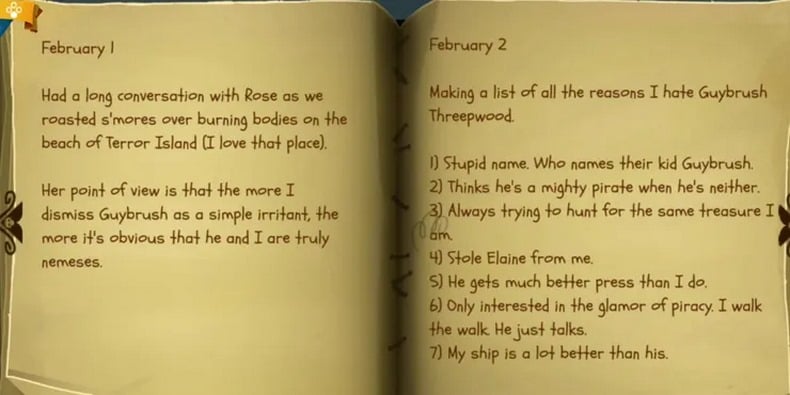 February 1
Had a long conversation with Rose as we
roasted s'mores over burning bodies on the
beach of Terror Island (I love that place).
Her point of view is that the more I
dismiss Guybrush as a simple irritant, the
more it's obvious that he and I are truly
nemeses.
February 2
Making a list of all the reasons I hate Guybrush
Threepwood.
1) Stupid name. Who names their kid Guybrush.
2) Thinks he's a mighty pirate when he's neither.
3) Always trying to hunt for the same treasure I
am.
4) Stole Elaine from me.
5) He gets much better press than I do.
6) Only interested in the glamor of piracy. I walk
the walk. He just talks.
7) My ship is a lot better than his.